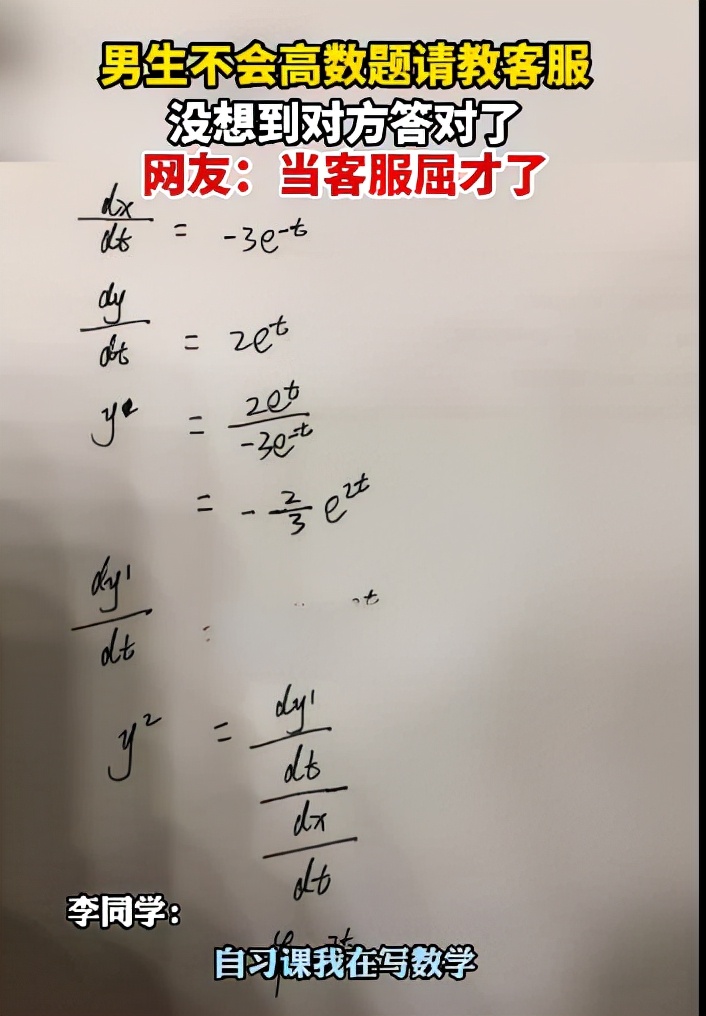 男生不会高数题请教客服
没想到对方答对了
网友：当客服屈才了
dx/dt = -3e^-t
dy/dt = 2e^t
y' = 2e^t/-3e^-t
= -2/3 e^2t
dy'/dt =
y² = dy'/dt / dx/dt
李同学：
自习课我在写数学